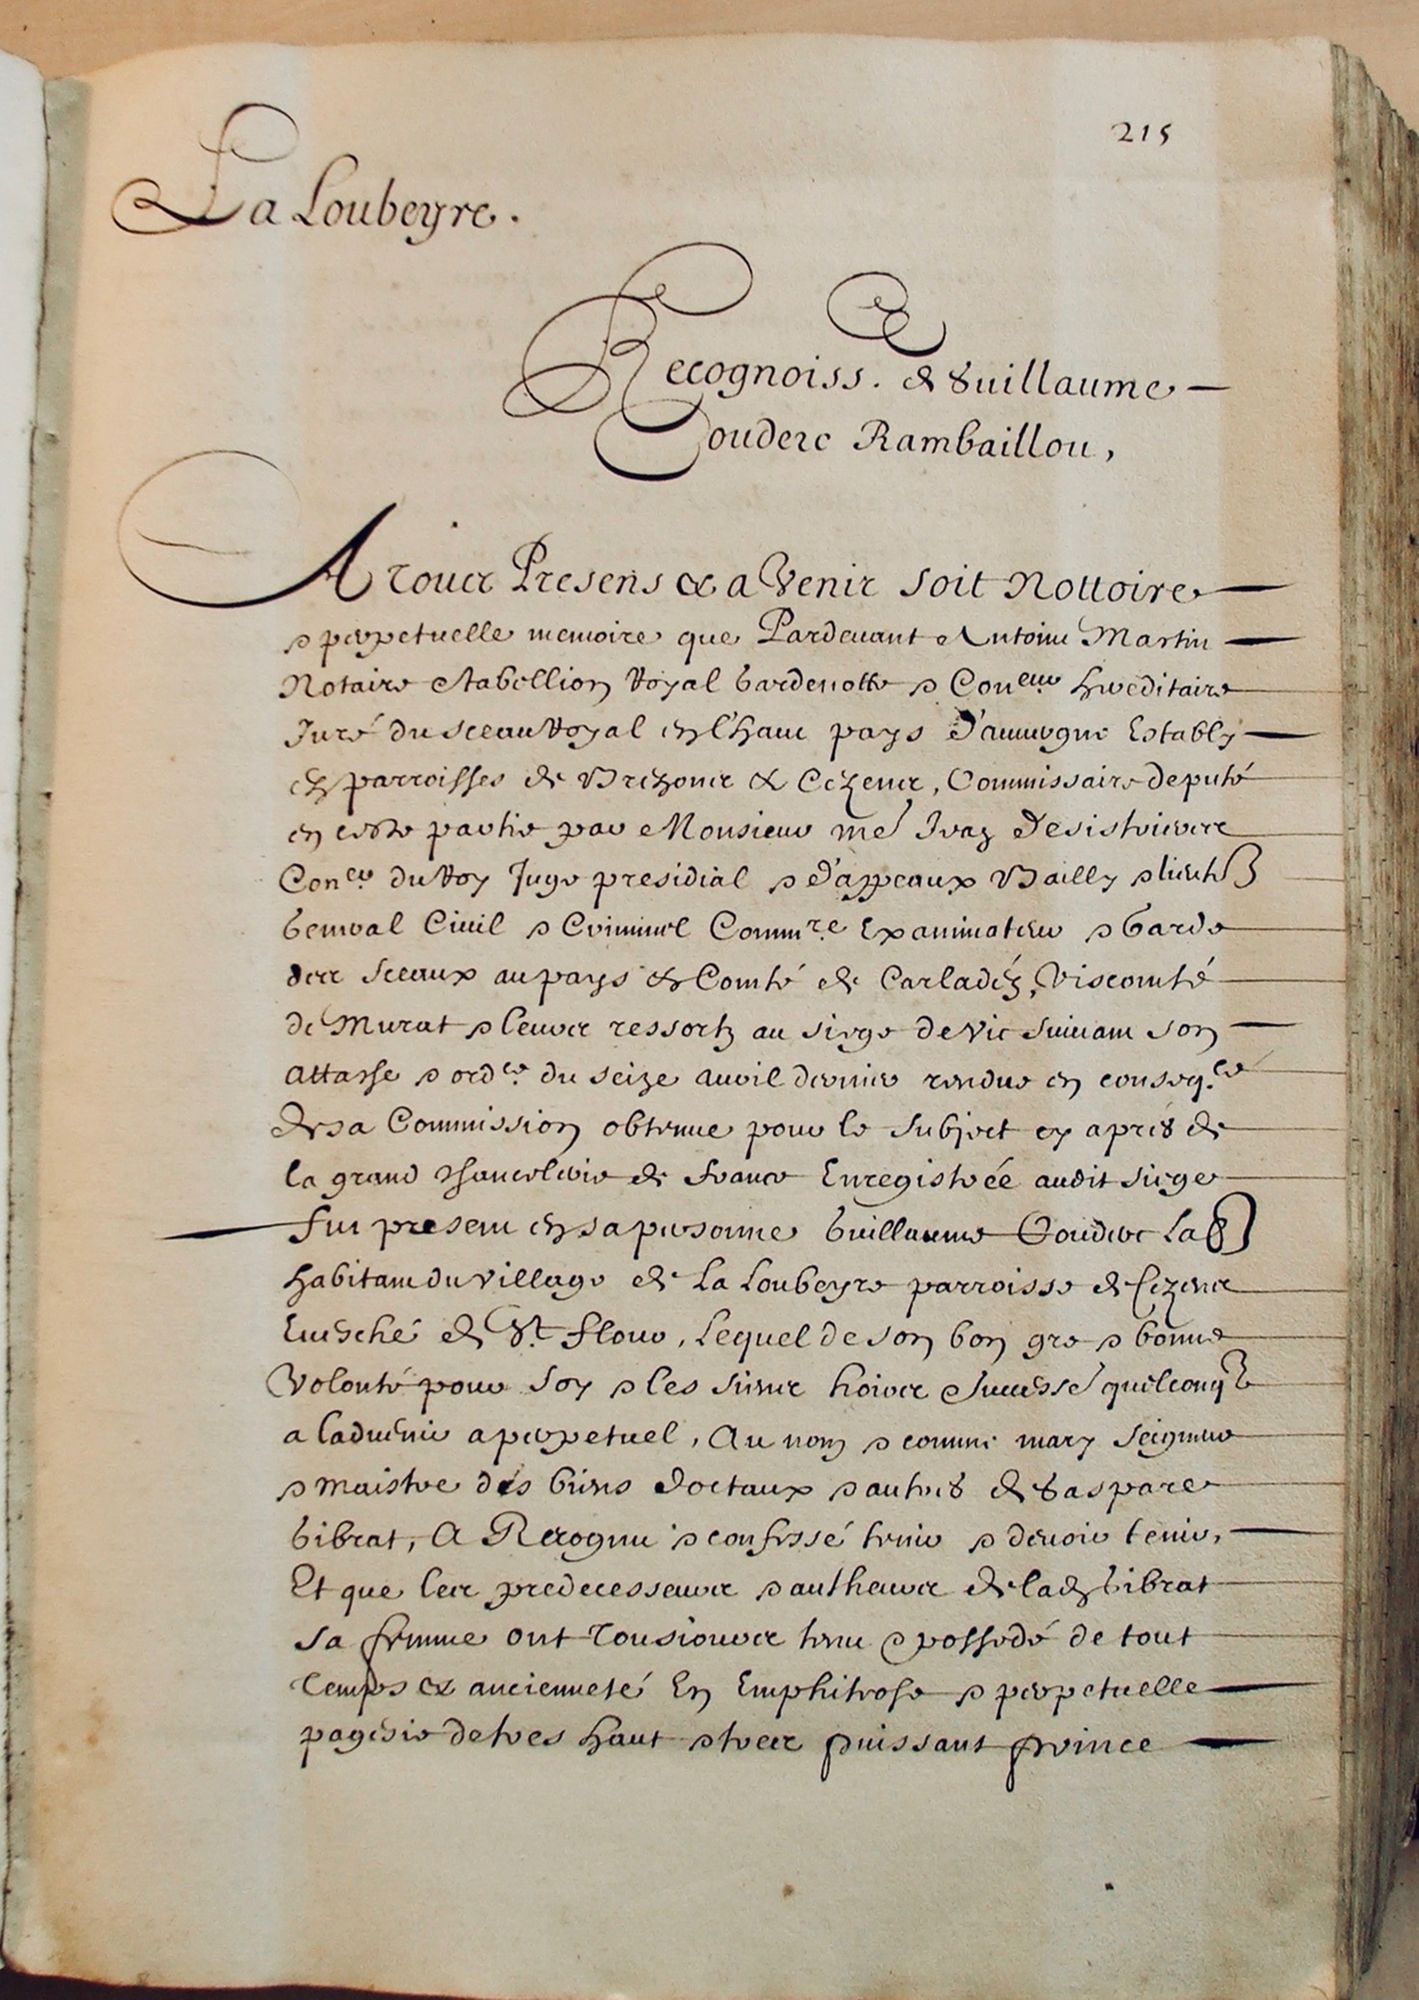 215
La Loubeyre.
Recognoiss. de Guillaume
Couderc Rambaillou,
A tous Presens & a Venir soit Nottoire
& perpetuelle memoire que Pardevant Antoine Martin
Notaire & tabellion Royal Gardenotte & Con.eur hereditaire
Juré du sceau Royal en l'haut pays d'auvergne Estably
ez parroisses de Brezons & Cezens, Commissaire deputé
en ceste partie par Monsieur me Jean Desistrieres
Con.er du Roy Juge presidial & d'appeaux Bailly & lieut
General Civil & Criminel Comm.re Examinateur & Garde
des sceaux au pays & Comté de Carladéz, Viscomté
de Murat & leurs ressortz au siege de Vic suivant son
attasse & ord.ce du seize avril dernier rendue en conseq.ce
de sa Commission obtenue pour le subject cy apres de
la grand Chancelerie de france Enregistrée audit siege
fut present en sa personne Guillaume Couderc La
habitant du village de La Loubeyre parroisse de Cezens
Evesché de St. flour, Lequel de son bon gre & bonne
Volonté pour soy & les siens hoirs & success. quelconq
a l'advenir a perpetuel, Au nom & comme mary seigneur
& maistre des biens doctaux & autres de Gaspare
Gibrat, A Recognu & confessé tenir & devoir tenir,
Et que les predecesseurs & autheurs de lad. Gibrat
sa femme ont Tousiours tenu & possedé de tout
temps & ancienneté En Emphiteose & perpetuelle
pagesie de tres haut & tres puissant prince